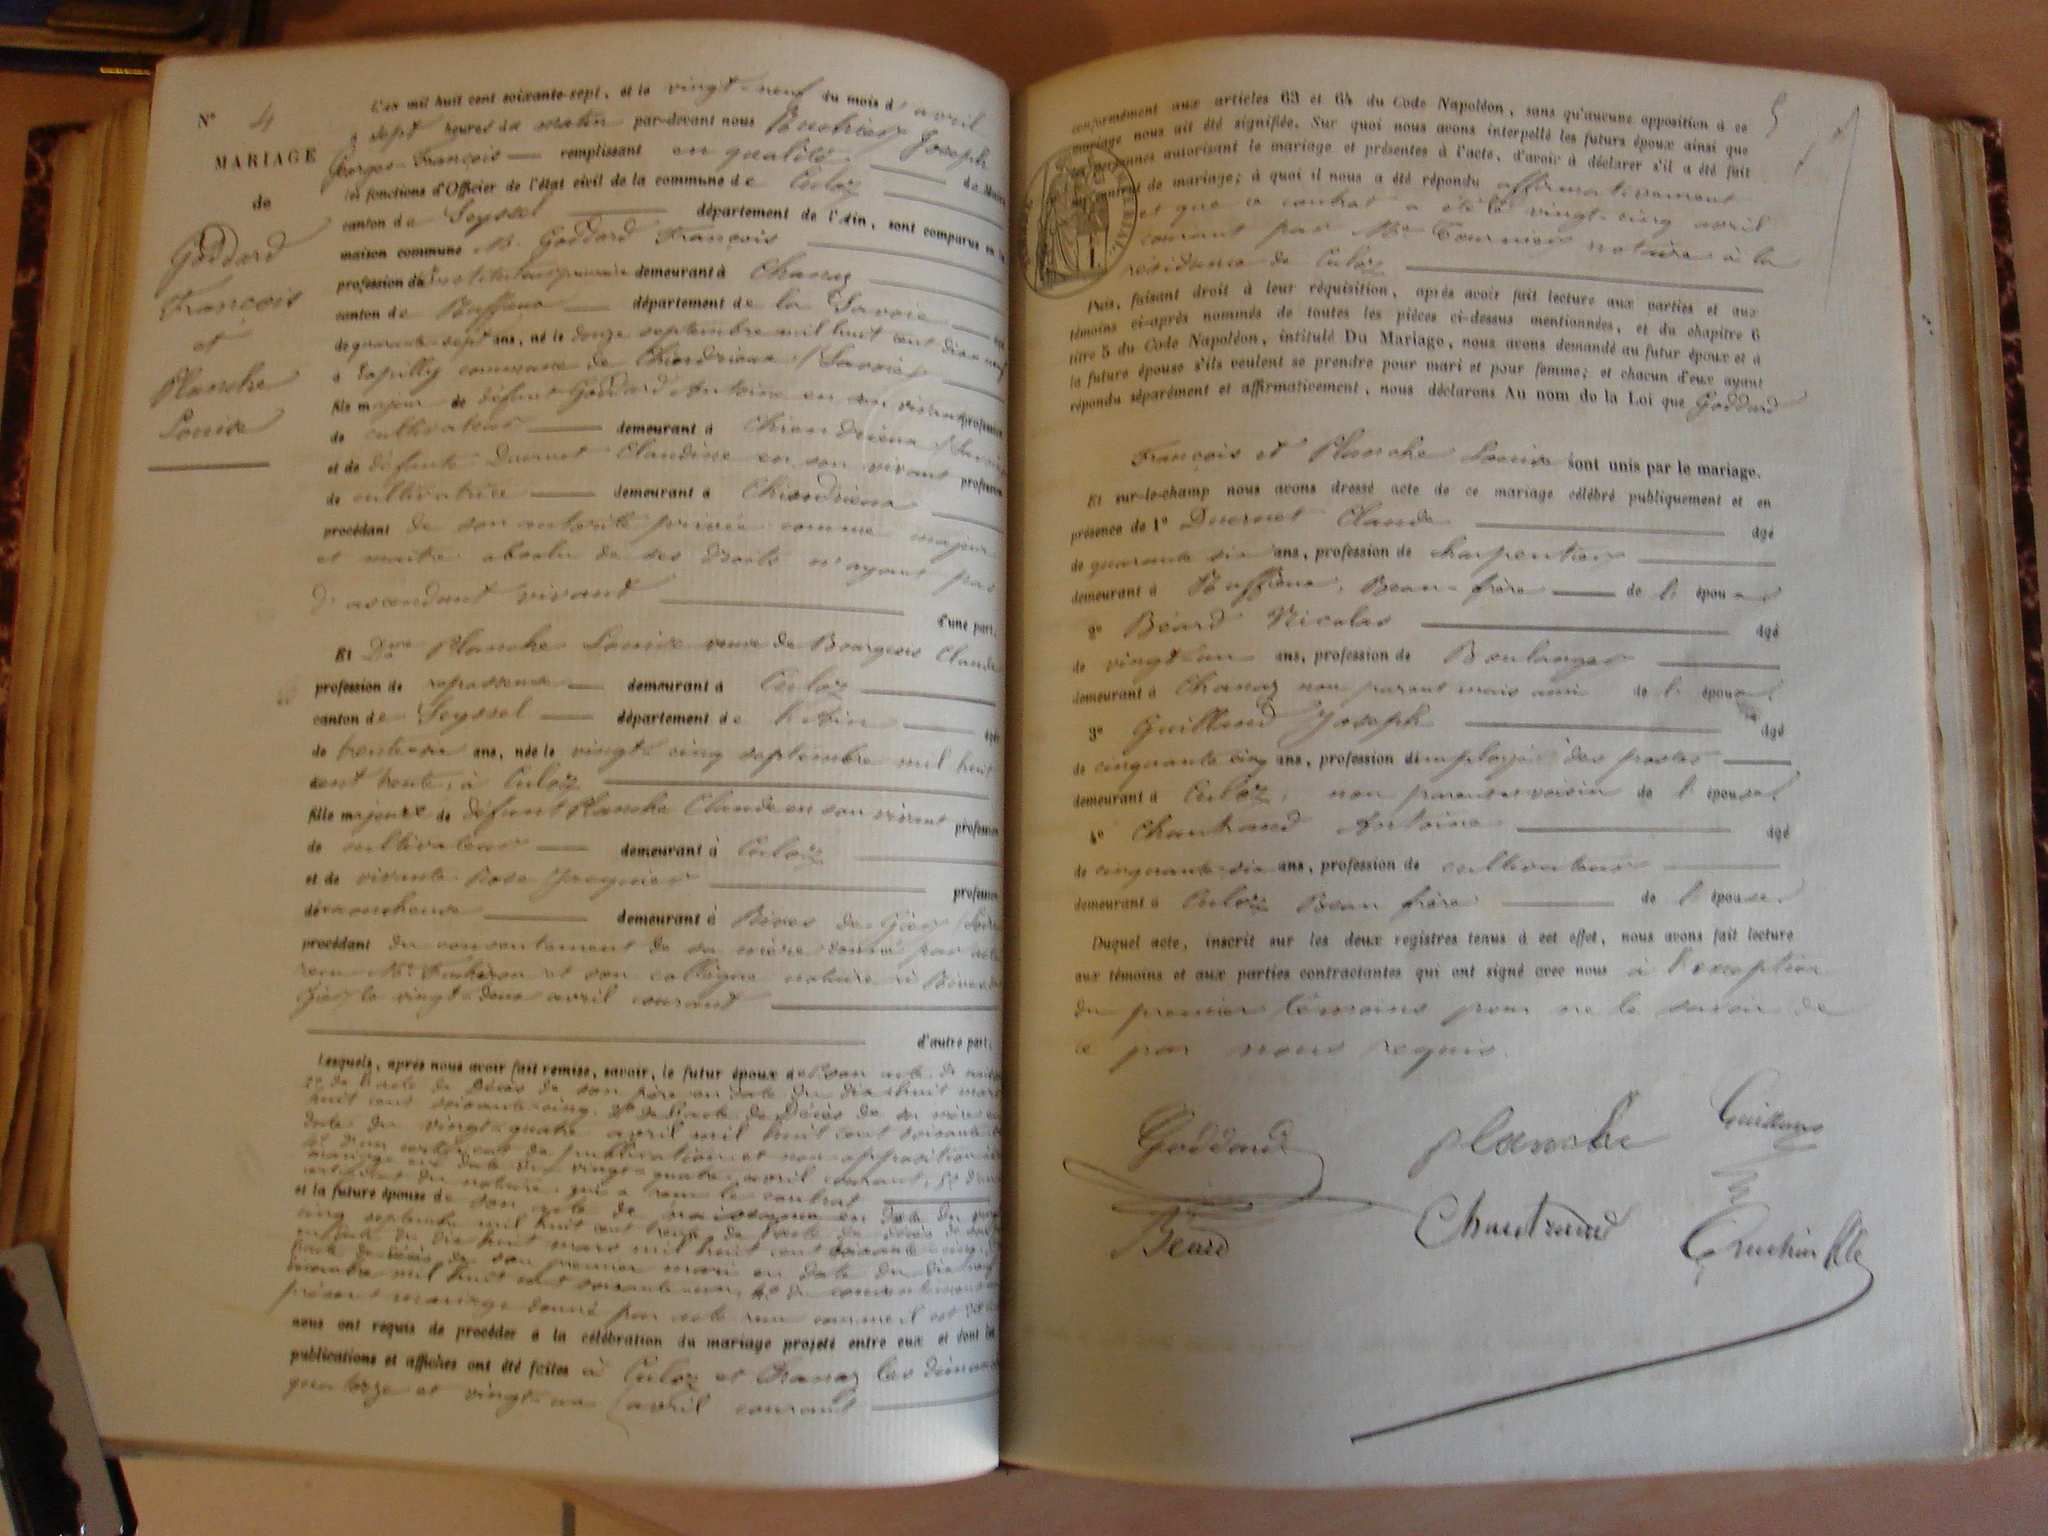 N° 4
MARIAGE
de
Goddard
François
et
Planche
Louise
L'an mil huit cent soixante-sept, et le vingt-neuf du mois d'avril
à sept heures du matin par-devant nous Joseph
François remplissant en qualité de Maire
les fonctions d'Officier de l'état civil de la commune de Culoz
canton de Seyssel département de l'Ain, sont comparus en la
maison commune M. Goddard François
profession d'instituteur primaire demeurant à Chanaz
canton de Ruffieux département de la Savoie âgé
de quarante sept ans, né le douze septembre mil huit cent dix neuf
à commune de Chindrieux (Savoie)
fils majeur de défunt Goddard Antoine en son vivant profession
de cultivateur demeurant à Chindrieux (Savoie
et de défunte Ducruet Claudine en son vivant profession
de cultivatrice demeurant à Chindrieux
procédant de son autorité privée comme majeur
et maître absolu de ses droits n'ayant pas
d'ascendant vivant
d'une part,
Et Dme Planche Louise veuve de Bourgeois Claude
profession de repasseuse demeurant à Culoz
canton de Seyssel département de l'Ain âgée
de trente six ans, née le vingt cinq septembre mil huit
cent trente, à Culoz
fille majeure de défunt Planche Claude en son vivant profession
de cultivateur demeurant à Culoz
et de vivante Rose profession
de demeurant à Rives de Gier (Loire
procédant du consentement de sa mère donné par acte
reçu Me et son collègue notaire à Rives de
Gier le vingt-deux avril courant
d'autre part,
Lesquels, après nous avoir fait remise, savoir, le futur époux de 1° son acte de
2° de l'acte de décès de son père en date du dix huit mars
huit cent soixante-cinq, 3° de l'acte de Décès de sa mère en
date du vingt-quatre avril mil huit cent soixante
4° d'un certificat de publication et non opposition
mariage en date du vingt-quatre avril courant, 5° d'un
certificat du notaire qui a reçu le contrat
et la future épouse de son acte de naissance en date du vingt
cinq septembre mil huit cent trente de l'acte de décès de son
en date du dix huit mars mil huit cent soixante-cinq,
l'acte de décès de son premier mari en date du dix neuf
mil huit cent soixante 4° du consentement
présent mariage donné par acte reçu comme il est dit
nous ont requis de procéder à la célébration du mariage projeté entre eux et dont les
publications et affiches ont été faites à Culoz et Chanaz les dimanches
quatorze et vingt-un avril courant
5
conformément aux articles 63 et 64 du Code Napoléon, sans qu'aucune opposition à ce
mariage nous ait été signifiée. Sur quoi nous avons interpellé les futurs époux ainsi que
les personnes autorisant le mariage et présentes à l'acte, d'avoir à déclarer s'il a été fait
un contrat de mariage; à quoi il nous a été répondu affirmativement
et que ce contrat a été le vingt-cinq avril
courant par Me Tournier notaire à la
résidence de Culoz
Puis, faisant droit à leur réquisition, après avoir fait lecture aux parties et aux
témoins ci-après nommés de toutes les pièces ci-dessus mentionnées, et du chapitre 6
titre 5 du Code Napoléon, intitulé Du Mariage, nous avons demandé au futur époux et à
la future épouse s'ils veulent se prendre pour mari et pour femme; et chacun d'eux ayant
répondu séparément et affirmativement, nous déclarons Au nom de la Loi que Goddard
François et Planche Louise sont unis par le mariage.
Et sur-le-champ nous avons dressé acte de ce mariage célébré publiquement et en
présence de 1° Ducruet Claude âgé
de quarante six ans, profession de charpentier
demeurant à Ruffieux, Beau-frère de l'époux
2° Béard Nicolas âgé
de vingt un ans, profession de Boulanger
demeurant à Chanaz non parent mais ami de l'époux
3° Guilland Joseph âgé
de cinquante cinq ans, profession d'employé des postes
demeurant à Culoz, non parent voisin de l'épouse
4° Chautrand Antoine âgé
de cinquante-six ans, profession de cultivateur
demeurant à Culoz Beau frère de l'épouse
Duquel acte, inscrit sur les deux registres tenus à cet effet, nous avons fait lecture
aux témoins et aux parties contractantes qui ont signé avec nous à l'exception
du premier témoins pour ne le savoir de
ce par nous requis.
Goddard planche Guilland
Béard Chautrand